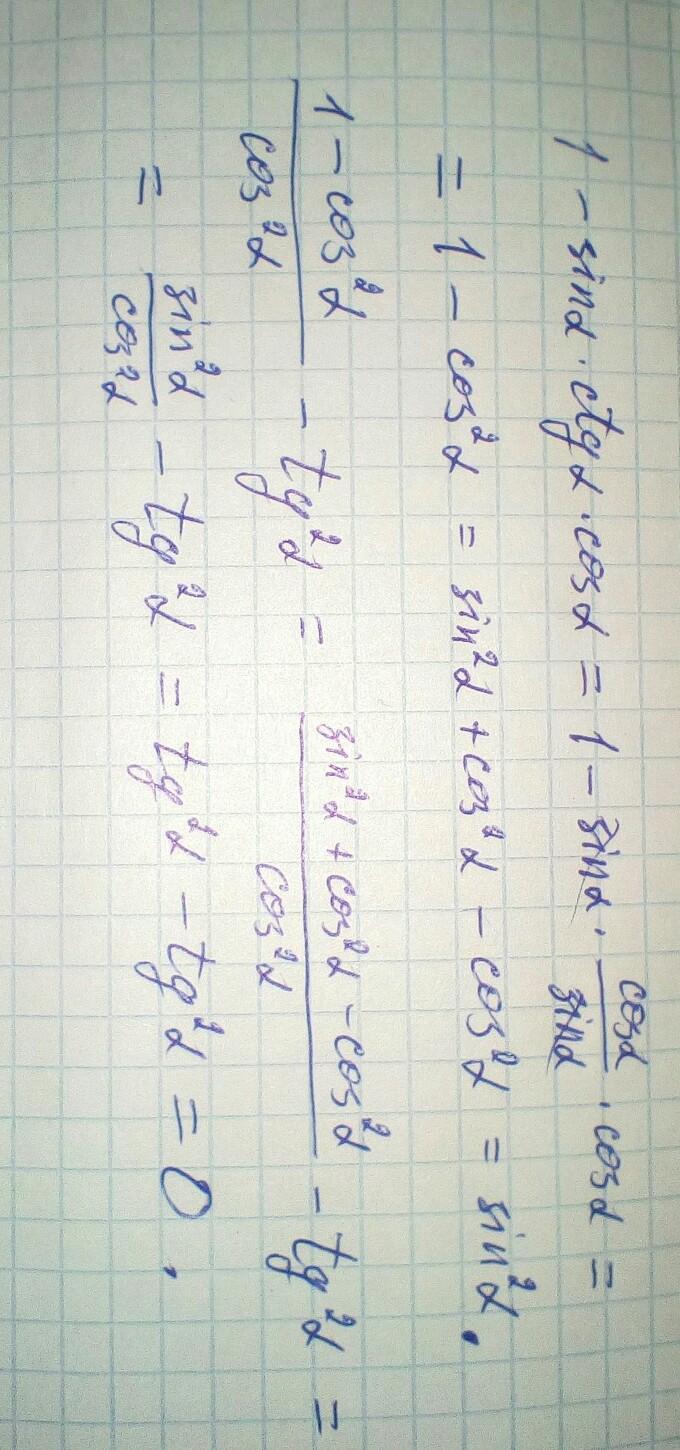 1 - sinα · ctgα · cosα = 1 - sinα · cosα/sinα · cosα =
= 1 - cos²α = sin²α + cos²α - cos²α = sin²α.
(1 - cos²α)/cos²α - tg²α = (sin²α + cos²α - cos²α)/cos²α - tg²α =
= sin²α/cos²α - tg²α = tg²α - tg²α = 0.